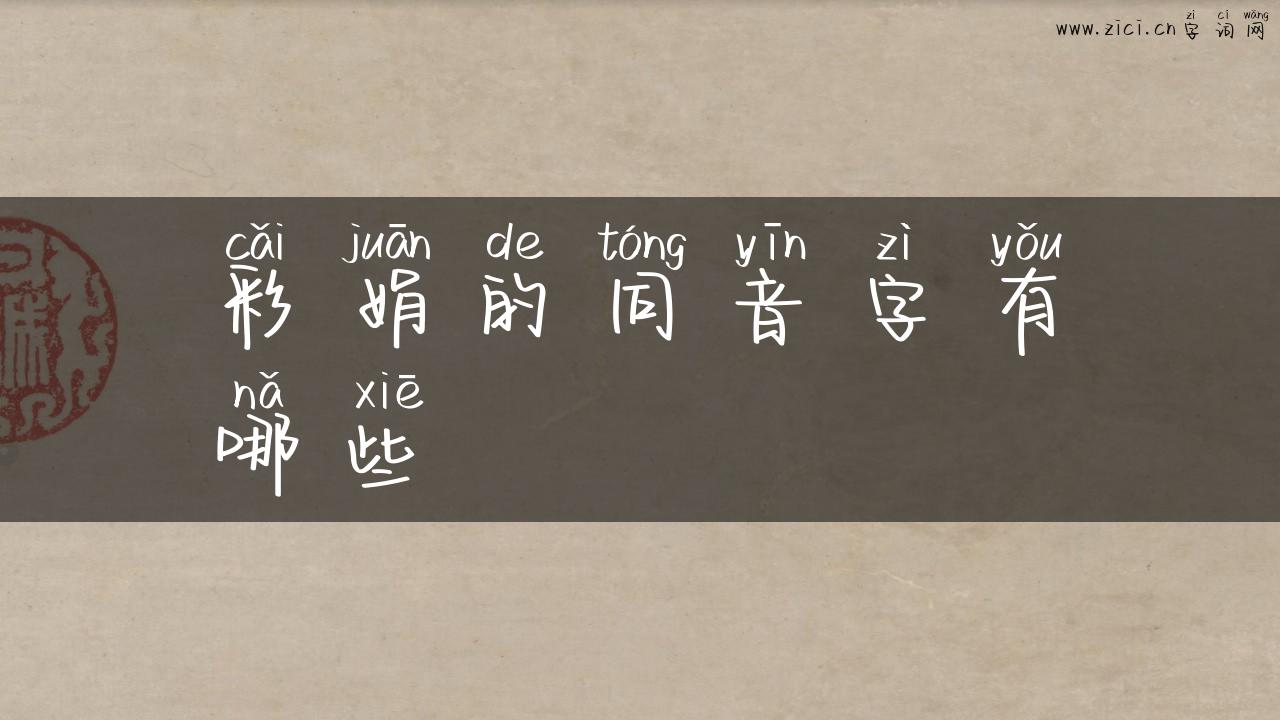 zì cí wǎng
www.zici.cn 字词网
cǎi juān de tóng yīn zì yǒu
彩娟的同音字有
nǎ xiē
哪些